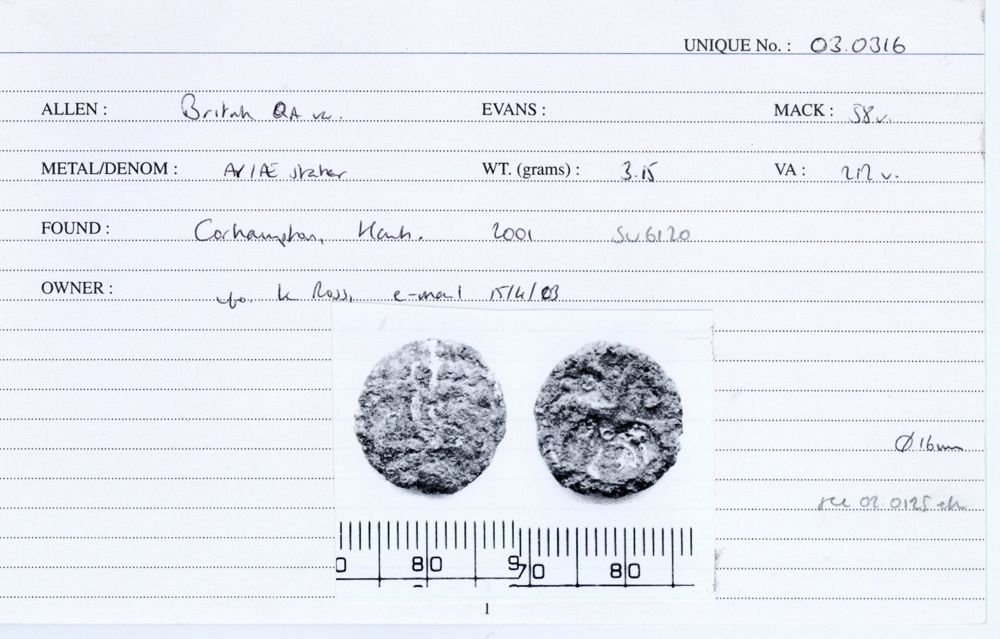 UNIQUE No. : 03.0316
ALLEN : British QA var. EVANS : MACK : 58 v.
METAL/DENOM : AV/AE stater WT. (grams) : 3.15 VA : 212 v.
FOUND : Corhampton, Hants. 2001 SU6120
OWNER : K Ross, e-mail 15/4/03
Ø 16mm
see 02.0125 etc
0 80 9 70 80
1